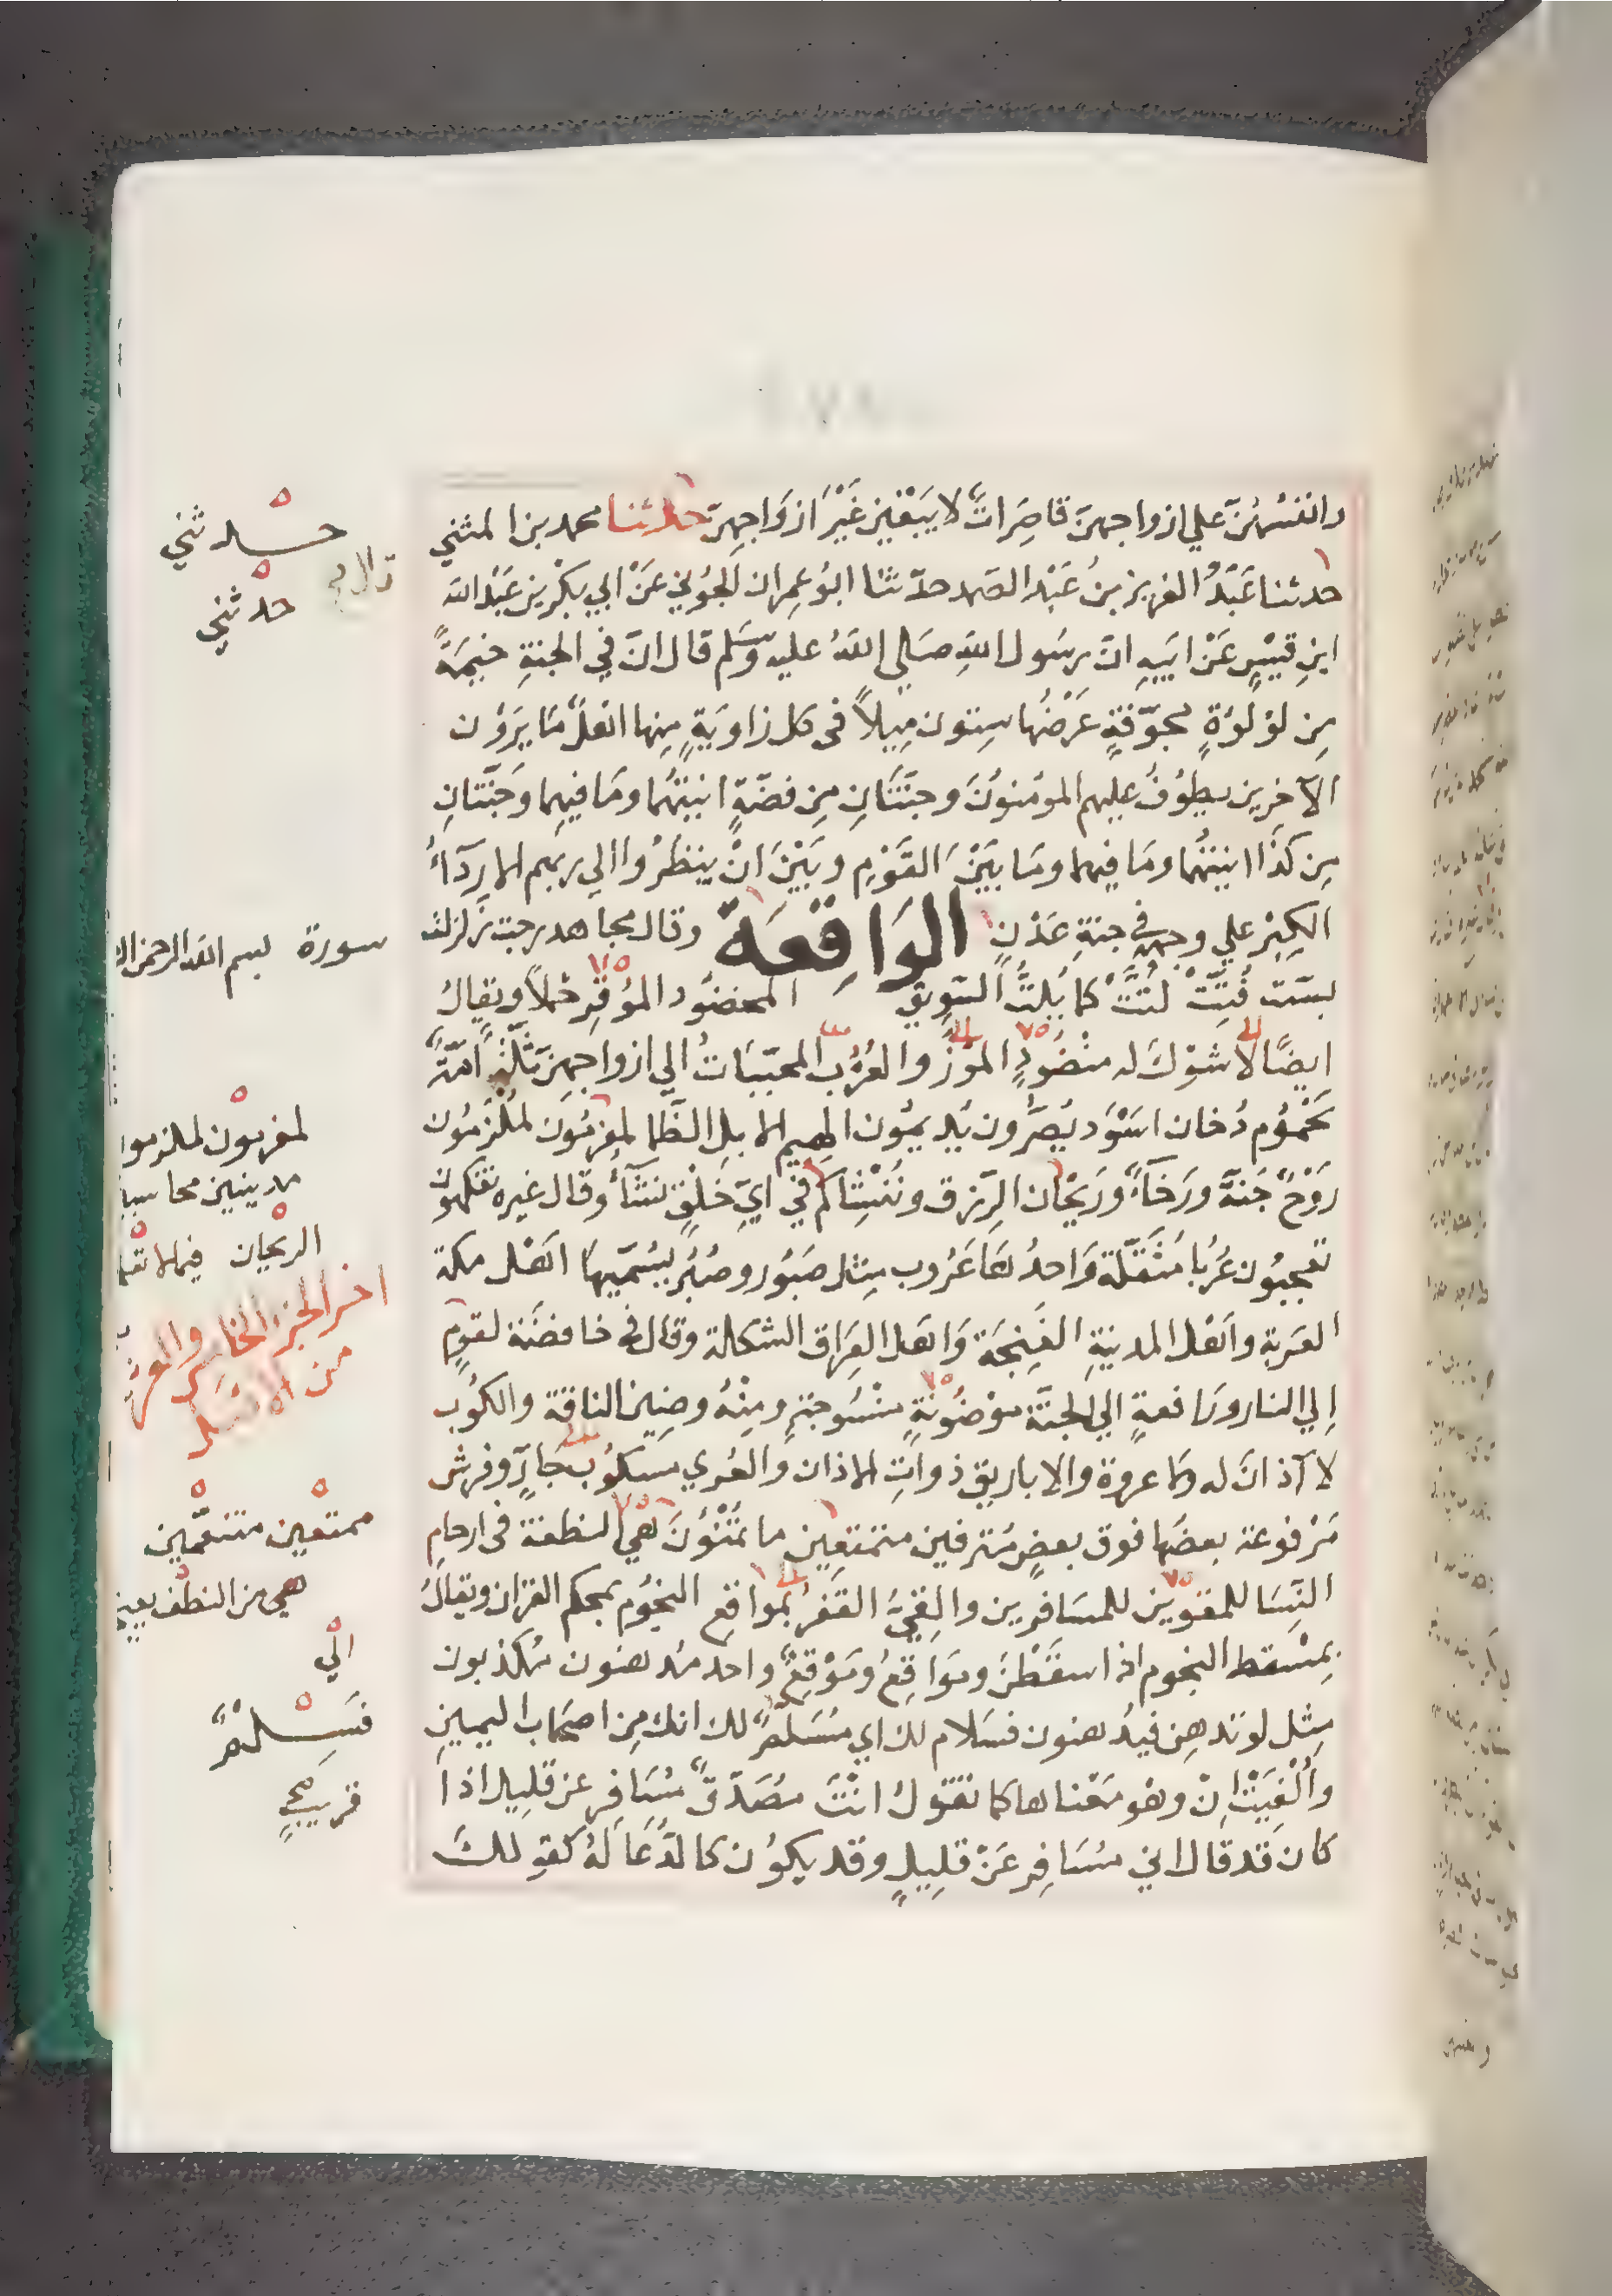 وانفسُهُنّ علي ازواجهنّ قاصِرَاتٌ لا يَبْغِينَ غَيْرَ ازوَاجِهِنّ حدثنا محمد بن المثني
حدثنا عَبْدُ العزيز بنُ عَبْد الصمد حدّثنا ابوُ عِمران الجَوْني عَنْ ابي بكْرِ بن عَبْد الله
ابنِ قيْسٍ عَنْ ابيهِ انّ رسُول اللهِ صَلي اللهُ عليه وسَلم قال انّ في الجنةِ خيمَةً
مِن لؤلؤةٍ مجوّفةٍ عَرْضُها سِتون مِيلاً في كل زاويَةٍ مِنها اهْلٌ مَا يرَوْن
الآخرين يطوُفُ عليهم المومُنونَ وجنّتَانِ مِن فضّةٍ انيتهُما ومَا فيهِما وجَنّتانِ
مِن كذَا انيتهُما ومَا فيهما ومَا بَيْنَ القَوْمِ وبَيْنَ انْ ينظرُوا الي ربهم الا ردَآءُ
الكِبْر علي وجههِ في جنةِ عَدْنٍ الوَاقِعَة وقال مجاهد رجت زُلزلت
بسّت فُتّتْ لُتّتْ كما يُلتُّ السّوِيق المخضُود المُوقَر حَملاً ويقالُ
ايضًا لا شوْكَ له منْضُودٍ الموْز والعُرُب المحبّبَاتُ الي ازواجهنّ ثُلّةٌ امّةٌ
يَحْمُوم دُخان اسْوَد يُصرّون يُديمُون الهِيم الابل الظّما لمغرَمُون لمُلْزَمُون
رَوْحٌ جَنة ورَخآءٌ ورَيْحَان الرّزق ونُنْشِئكم في ايّ خَلْقٍ نشَآءُ وقال غيره تفكهون
تعجبُون عُرُبًا مُثَقّلَة وَاحدُهَا عَرُوب مِثل صَبُور وصُبُر يُسَمّيهَا اهْل مكة
العَرِبة واهْل المدينةِ الغَنِجَة وَاهْل العِرَاق الشكلة وقال في خافضَة لقومٍ
إلي النار ورَافعةٍ الي الجنّة موْضُونةٍ منْسُوجةٍ ومِنْهُ وضِين الناقة والكُوب
لا آذانَ له ولا عروة والاباريق ذواتِ الاذان والعُري مسكُوب جَارٍ وفرش
مَرْفوعة بعضهَا فوق بعضٍ مُترفين متمتعِين ما تُمْنُونَ هي النطفة في ارحامِ
النّسَا للمقوين للمسَافرين والقِيُّ القَفْرُ بمواقعِ النجُوم بمحكم القرَان ويقالُ
بِمسْقط النجُوم اذا سقَطنَ ومَوَاقِعُ ومَوْقِعٌ واحد مُدهنون مُكذبون
مِثل لو تدهِن فيُدهنون فسَلام لك اي مُسَلّمٌ لك انك مِن اصحَاب اليمينِ
وأُلْغِيَتْ إنّ وهْو مَعْناها كما تقُولُ انْتَ مُصَدّقٌ مُسَافِر عن قلِيل اذا
كان قد قال اني مسَافِر عَنْ قلِيلٍ وقد يكُون كالدّعَا لَهُ كقوِلكَ
حدثني
قال
حدثني
سورة بسم الله الرحمن
لمغرمون لملزموا
مدينين محاسبين
الريحان فيما لا
اخر الجز الخامس والعشرين
من الاصل
ممتعين متنعّمين
هي من النطف يعني
الي
فَسِلْمٌ
قريبٍ